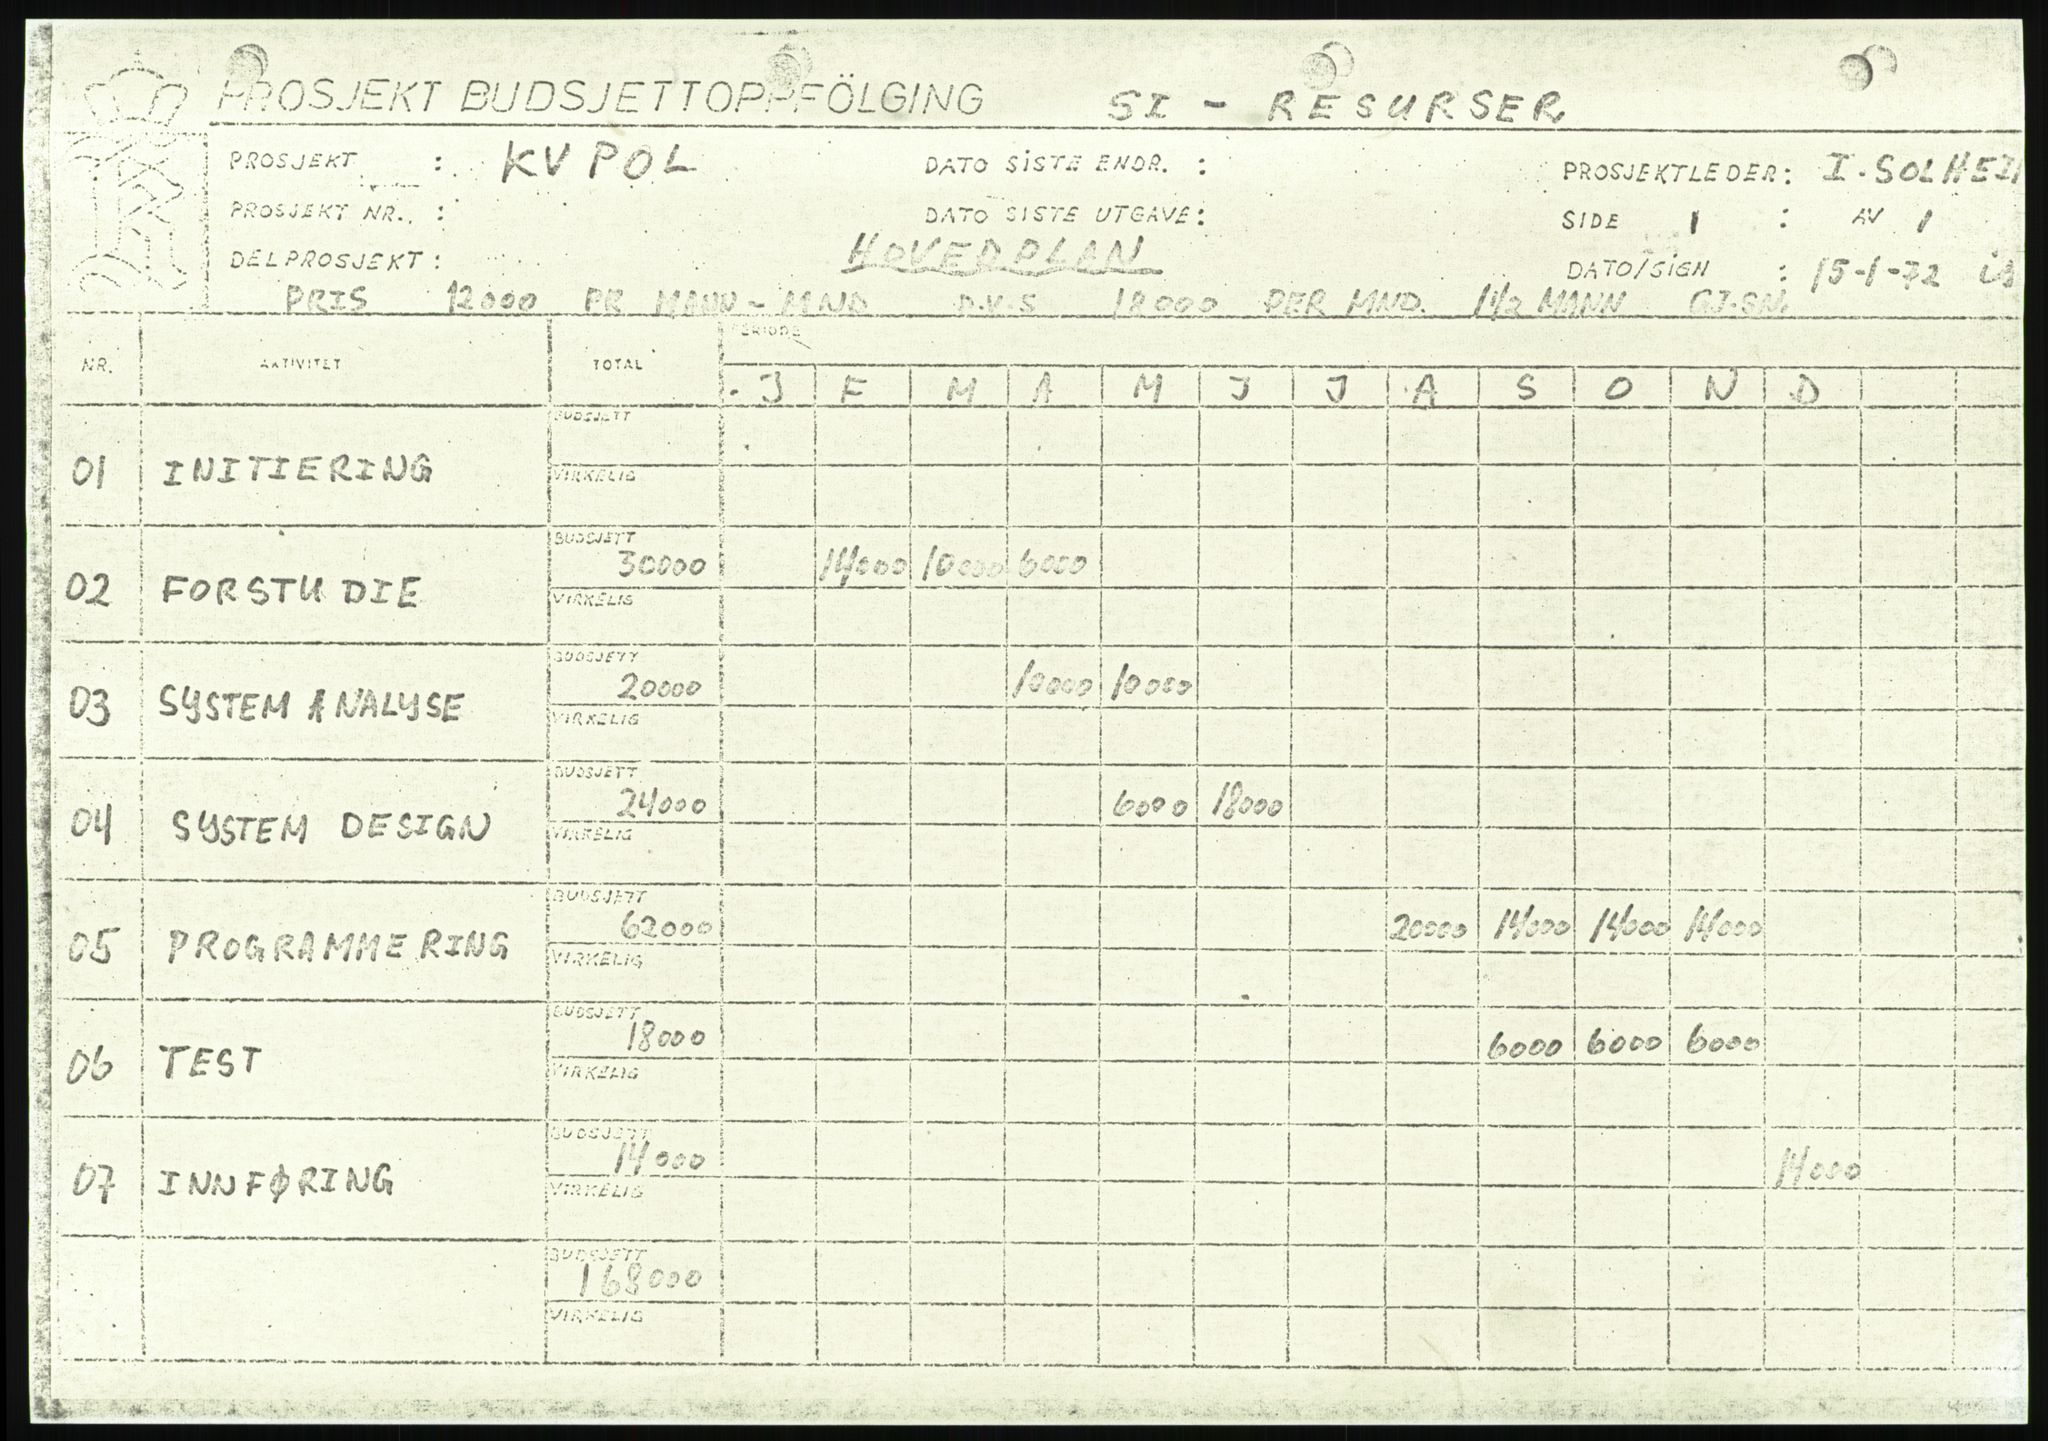 PROSJEKT BUDSJETTOPPFÖLGING SI - RESURSER
PROSJEKT : KVPOL DATO SISTE ENDR. : PROSJEKTLEDER: I. SOLHEIM
PROSJEKT NR. : DATO SISTE UTGAVE: SIDE 1 : AV 1
DELPROSJEKT: HOVEDPLAN DATO/SIGN : 15-1-72 is
PRIS 12000 PR MANN-MND D.V.S 18000 PER MND. 1 1/2 MANN GJ.SN.
NR. AKTIVITET TOTAL PERIODE
J F M A M J J A S O N D
BUDSJETT
01 INITIERING
VIRKELIG
BUDSJETT
02 FORSTUDIE 30000 14000 10000 6000
VIRKELIG
BUDSJETT
03 SYSTEM ANALYSE 20000 10000 10000
VIRKELIG
BUDSJETT
04 SYSTEM DESIGN 24000 6000 18000
VIRKELIG
BUDSJETT
05 PROGRAMMERING 62000 20000 14000 14000 14000
VIRKELIG
BUDSJETT
06 TEST 18000 6000 6000 6000
VIRKELIG
BUDSJETT
07 INNFØRING 14000 14000
VIRKELIG
BUDSJETT
168000
VIRKELIG